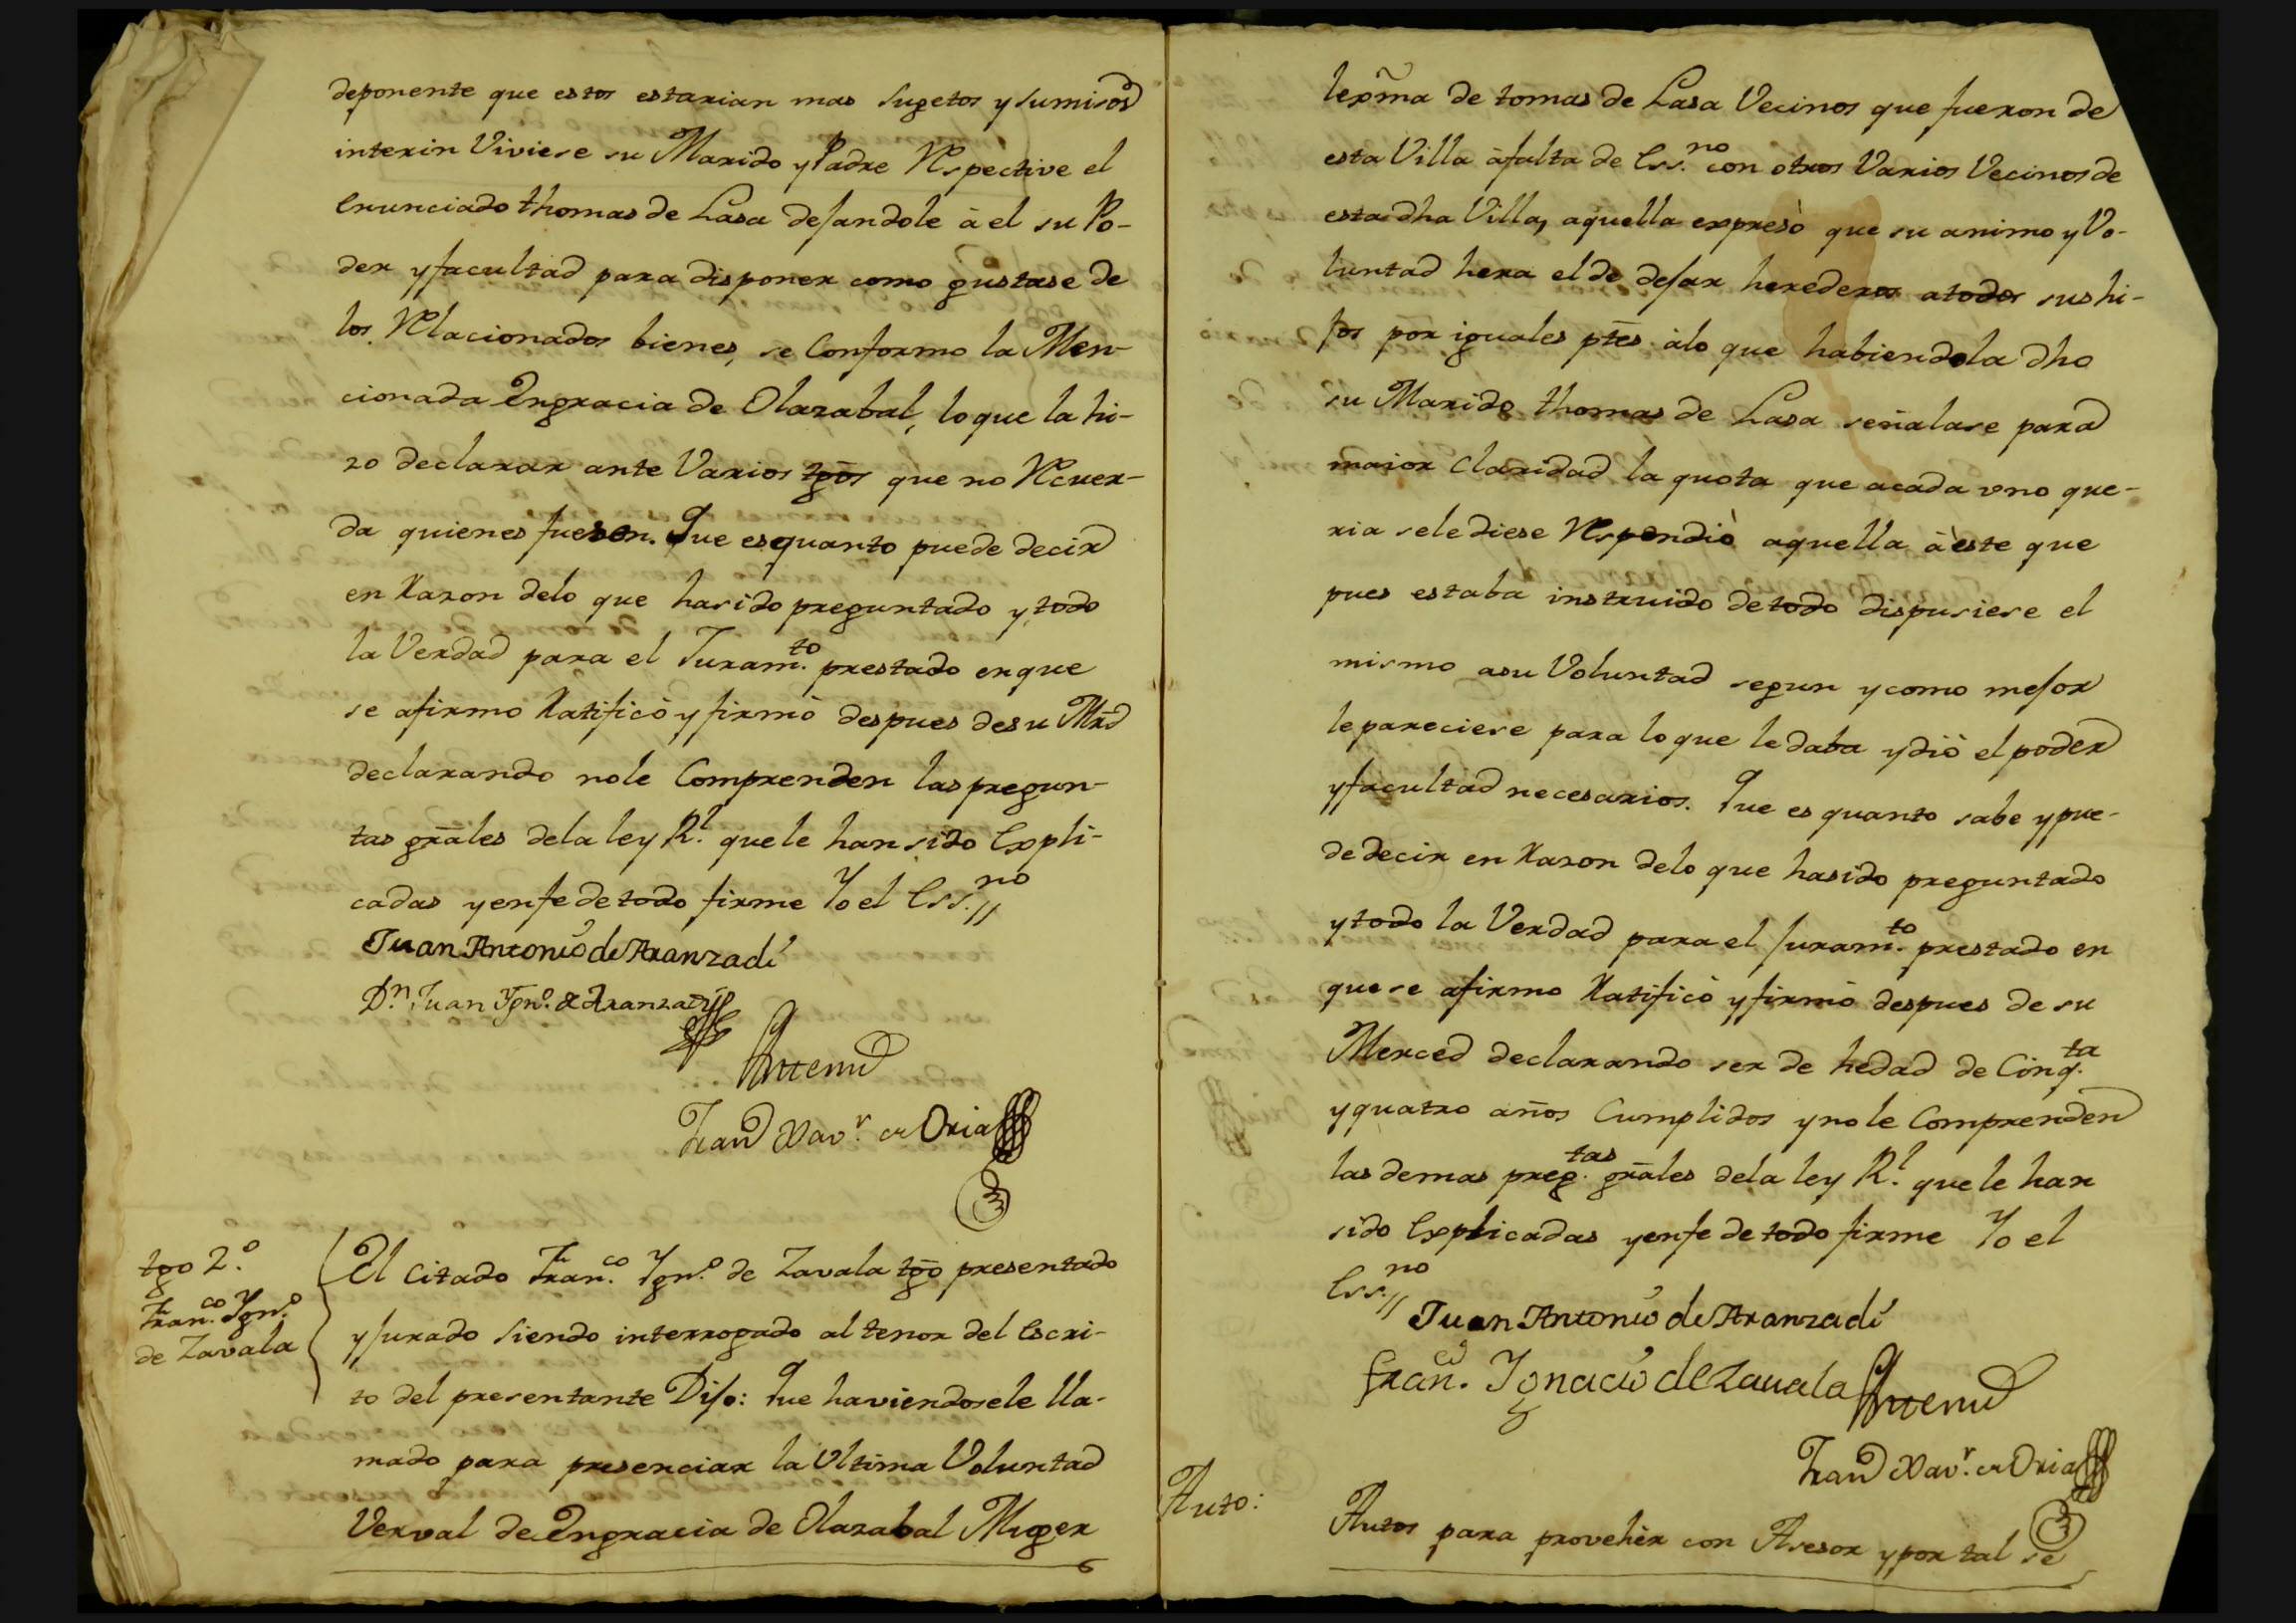 deponente que estos estarian mas sugetos y sumisos
interin Viviese su Marido y Padre Respective el
enunciado thomas de Lasa dejandole à el su Po-
der y facultad para disponer como gustase de
los Relacionados bienes, se Conformo la Men-
cionada Engracia de Olazabal, lo que la hi-
zo declarar ante Varios tgos que no Recuer-
da quienes fueron. Que es quanto puede decir
en Razon delo que ha sido preguntado y todo
la Verdad para el Juram.to prestado en que
se afirmo Ratificò y firmò despues de su Mrd
declarando no le Comprenden las pregun-
tas grales dela ley R.l que le han sido Expli-
cadas y enfe de todo firme Yo el Ess.no //
Juan Antonio de Aranzadi
D.n Juan Ygn.o de Aranzadi
Antemi
Fran.co Xav.r de Oria
tgo 2.o
Fran.co Ygn.o
de Zavala
El Citado Fran.co Ygn.o de Zavala tgo presentado
y jurado siendo interrogado al tenor del escri-
to del presentante Dijo: Que haviendosele lla-
mado para presenciar la Ultima Voluntad
Verval de Engracia de Olazabal Muger
lexma de tomas de Lasa Vecinos que fueron de
esta Villa à falta de Ess.no con otros Varios Vecinos de
esta dha Villa, aquella expresò que su animo y Vo-
luntad hera el de dejar herederos a todos sus hi-
jos por iguales ptes à lo que habiendola dho
su Marido thomas de Lasa señalase para
maior Claridad la quota que acada uno que-
ria sele diese Respondiò aquella à este que
pues estaba instruido de todo dispusiese el
mismo asu Voluntad segun y como mejor
le pareciese para lo que le daba y diò el poder
y facultad necesarios. Que es quanto sabe y pue-
de decir en Razon delo que hasido preguntado
y todo la Verdad para el juram.to prestado en
que se afirmo Ratificò y firmò despues de su
Merced declarando ser de hedad de Cinq.ta
y quatro años Cumplidos y no le Comprenden
las demas preg.tas grales dela ley R.l que le han
sido Explicadas y enfe de todo firme Yo el
Ess.no //
Juan Antonio de Aranzadi
Fran.co Ygnacio de Zavala
Antemi
Fran.co Xav.r de Oria
Auto:
Autos para provehèr con Asesor y por tal se